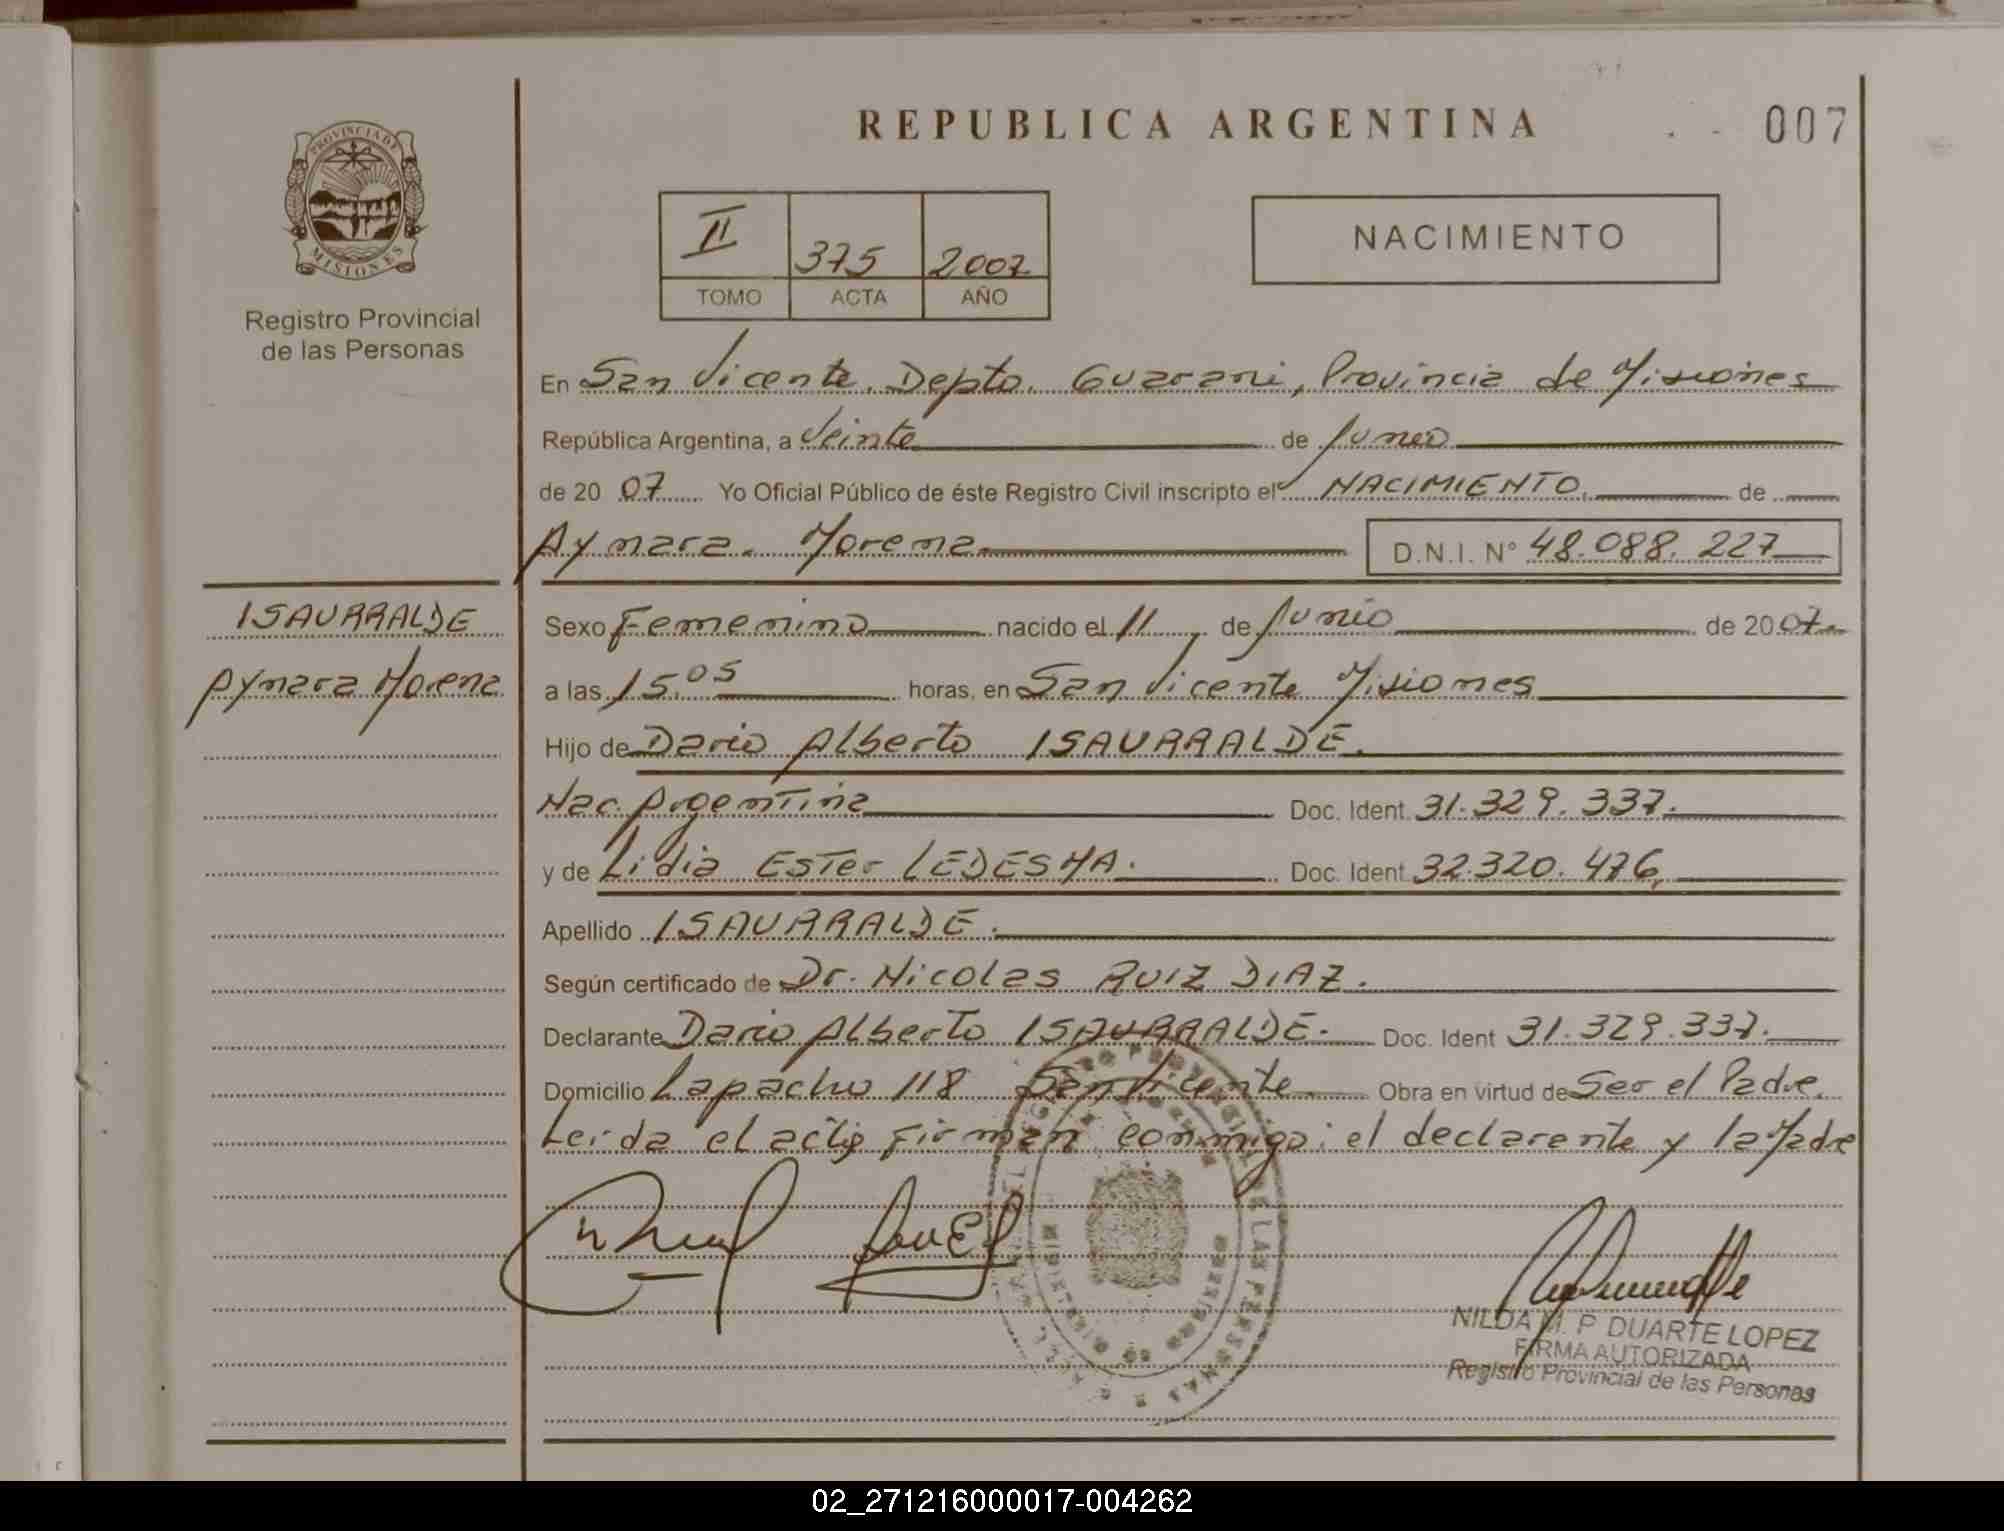 REPUBLICA ARGENTINA
007
PROVINCIA DE
MISIONES
Registro Provincial
de las Personas
II 375 2007
TOMO ACTA AÑO
NACIMIENTO
En San Vicente. Depto. Guarani, Provincia de Misiones
República Argentina, a Veinte de Junio
de 20 07 Yo Oficial Público de éste Registro Civil inscripto el NACIMIENTO. de
Aymara Morena D.N.I. N° 48.088.227
ISAURRALDE
Aymara Morena
Sexo Femenino nacido el 11 de Junio de 20 07
a las 15.05 horas, en San Vicente Misiones
Hijo de Dario Alberto ISAURRALDE.
Nac. Argentina Doc. Ident. 31.329.337.
y de Lidia Ester LEDESMA. Doc. Ident. 32.320.476.
Apellido ISAURRALDE.
Según certificado de Dr. Nicolas RUIZ DIAZ.
Declarante Dario Alberto ISAURRALDE. Doc. Ident 31.329.337.
Domicilio Lapacho 118 San Vicente Obra en virtud de Ser el Padre.
Leida el acta firman conmigo: el declarente y la Madre
NILDA M. P. DUARTE LOPEZ
FIRMA AUTORIZADA
Registro Provincial de las Personas
02_271216000017-004262